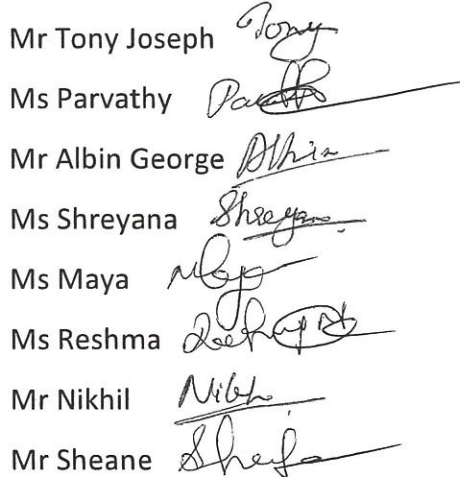 Mr Tony Joseph Tony
Ms Parvathy
Mr Albin George Albin
Ms Shreyana Shreyana
Ms Maya Maya
Ms Reshma
Mr Nikhil
Mr Sheane